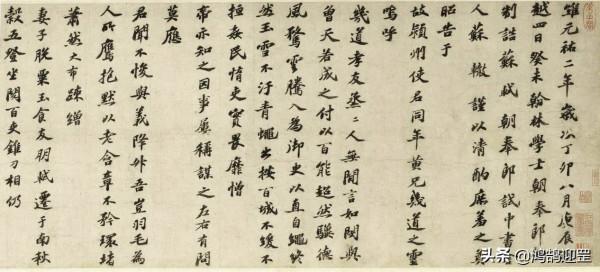 維元祐二年歲次丁卯八月庚辰
越四日癸未翰林學士朝奉郎
制誥蘇軾朝奉郎試中書
人蘇轍謹以清酌庶羞之奠
昭告于
故潁州使君同年黃兄幾道之靈
嗚呼
幾道孝友烝二人無間言如閔與
曾天若成之付以百能超然驥德
風騖雲騰入為御史以直自繩終
然玉雪不汙青蠅出按百城不緩不
搄姦民惰吏實畏靡憎
帝亦知之因事屢稱謀之左右有問
莫應
君聞不悛與義降升吾豈羽毛為
人所鷹抱默以老含章不矜環堵
蕭然大布疎繒
妻子脫粟玉食友朋軾遷于南秋
穀五登坐閱百吏錐刀相仍
头条 @鸿鹄迎罡